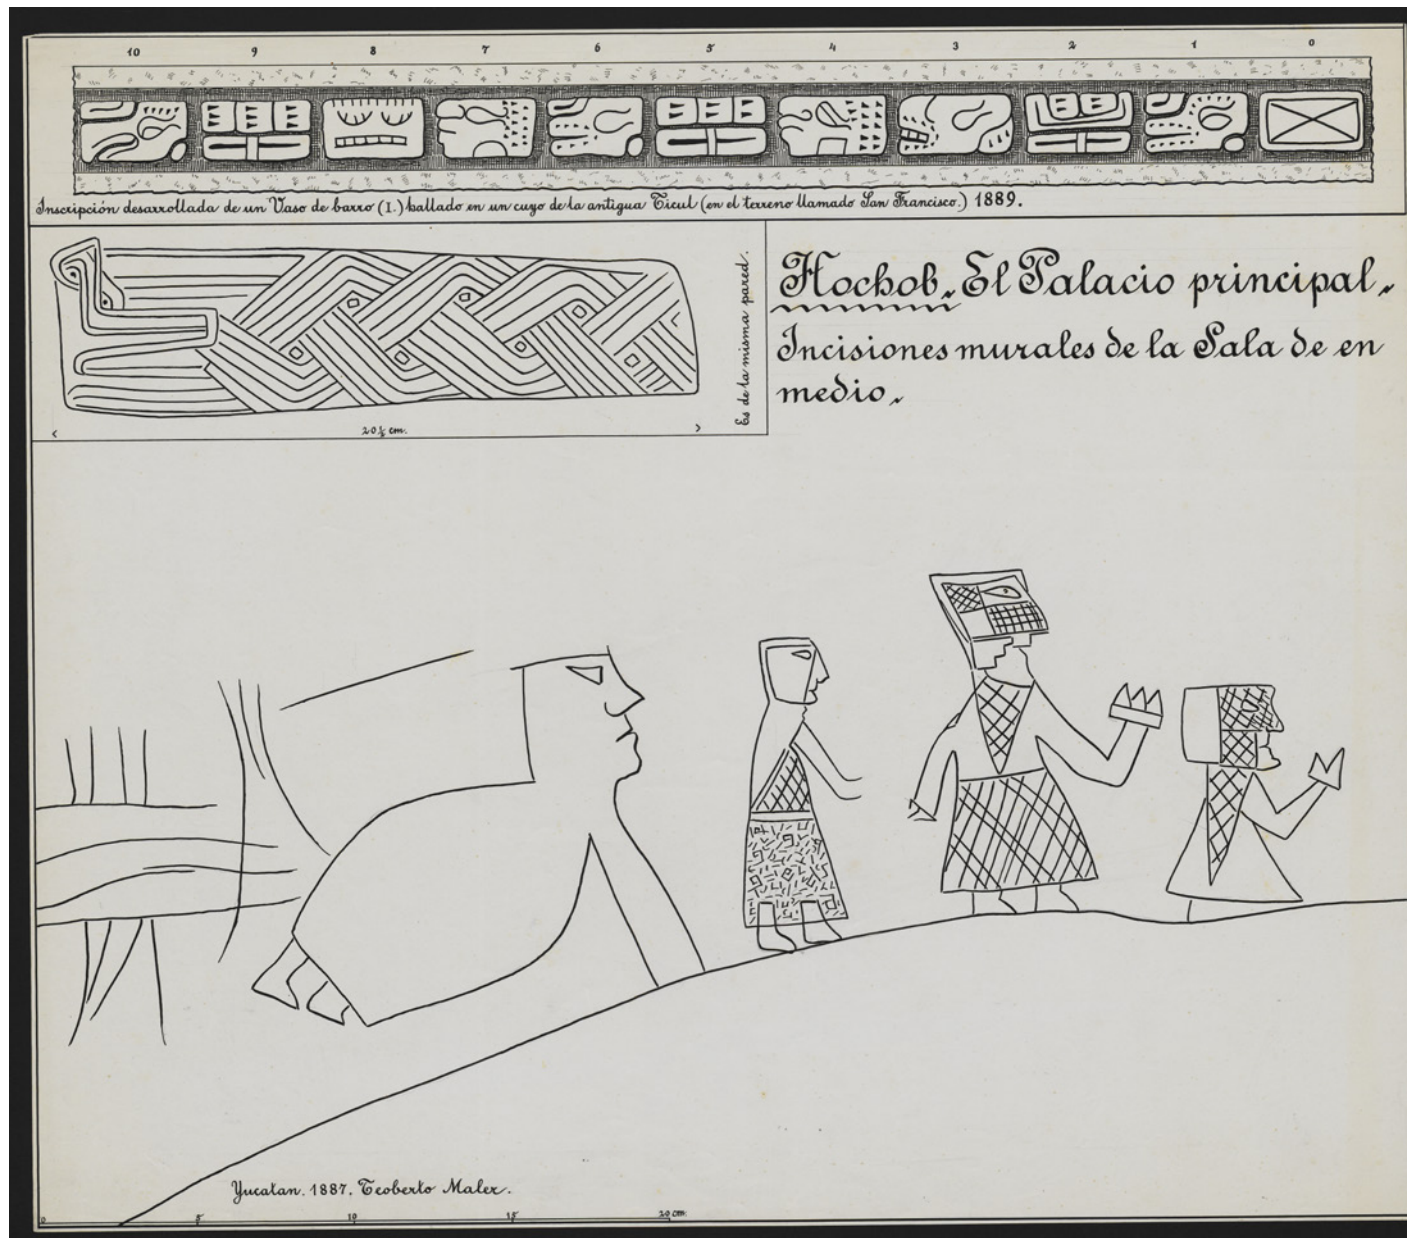 10 9 8 7 6 5 4 3 2 1 0
Inscripción desarrollada de un Vaso de barro (I.) hallado en un cuyo de la antigua Ticul (en el terreno llamado San Francisco.) 1889.
Es de la misma pared.
20½ cm.
Hochob. El Palacio principal.
Incisiones murales de la Sala de en
medio.
Yucatan. 1887. Teoberto Maler.
0 5 10 15 20 cm.